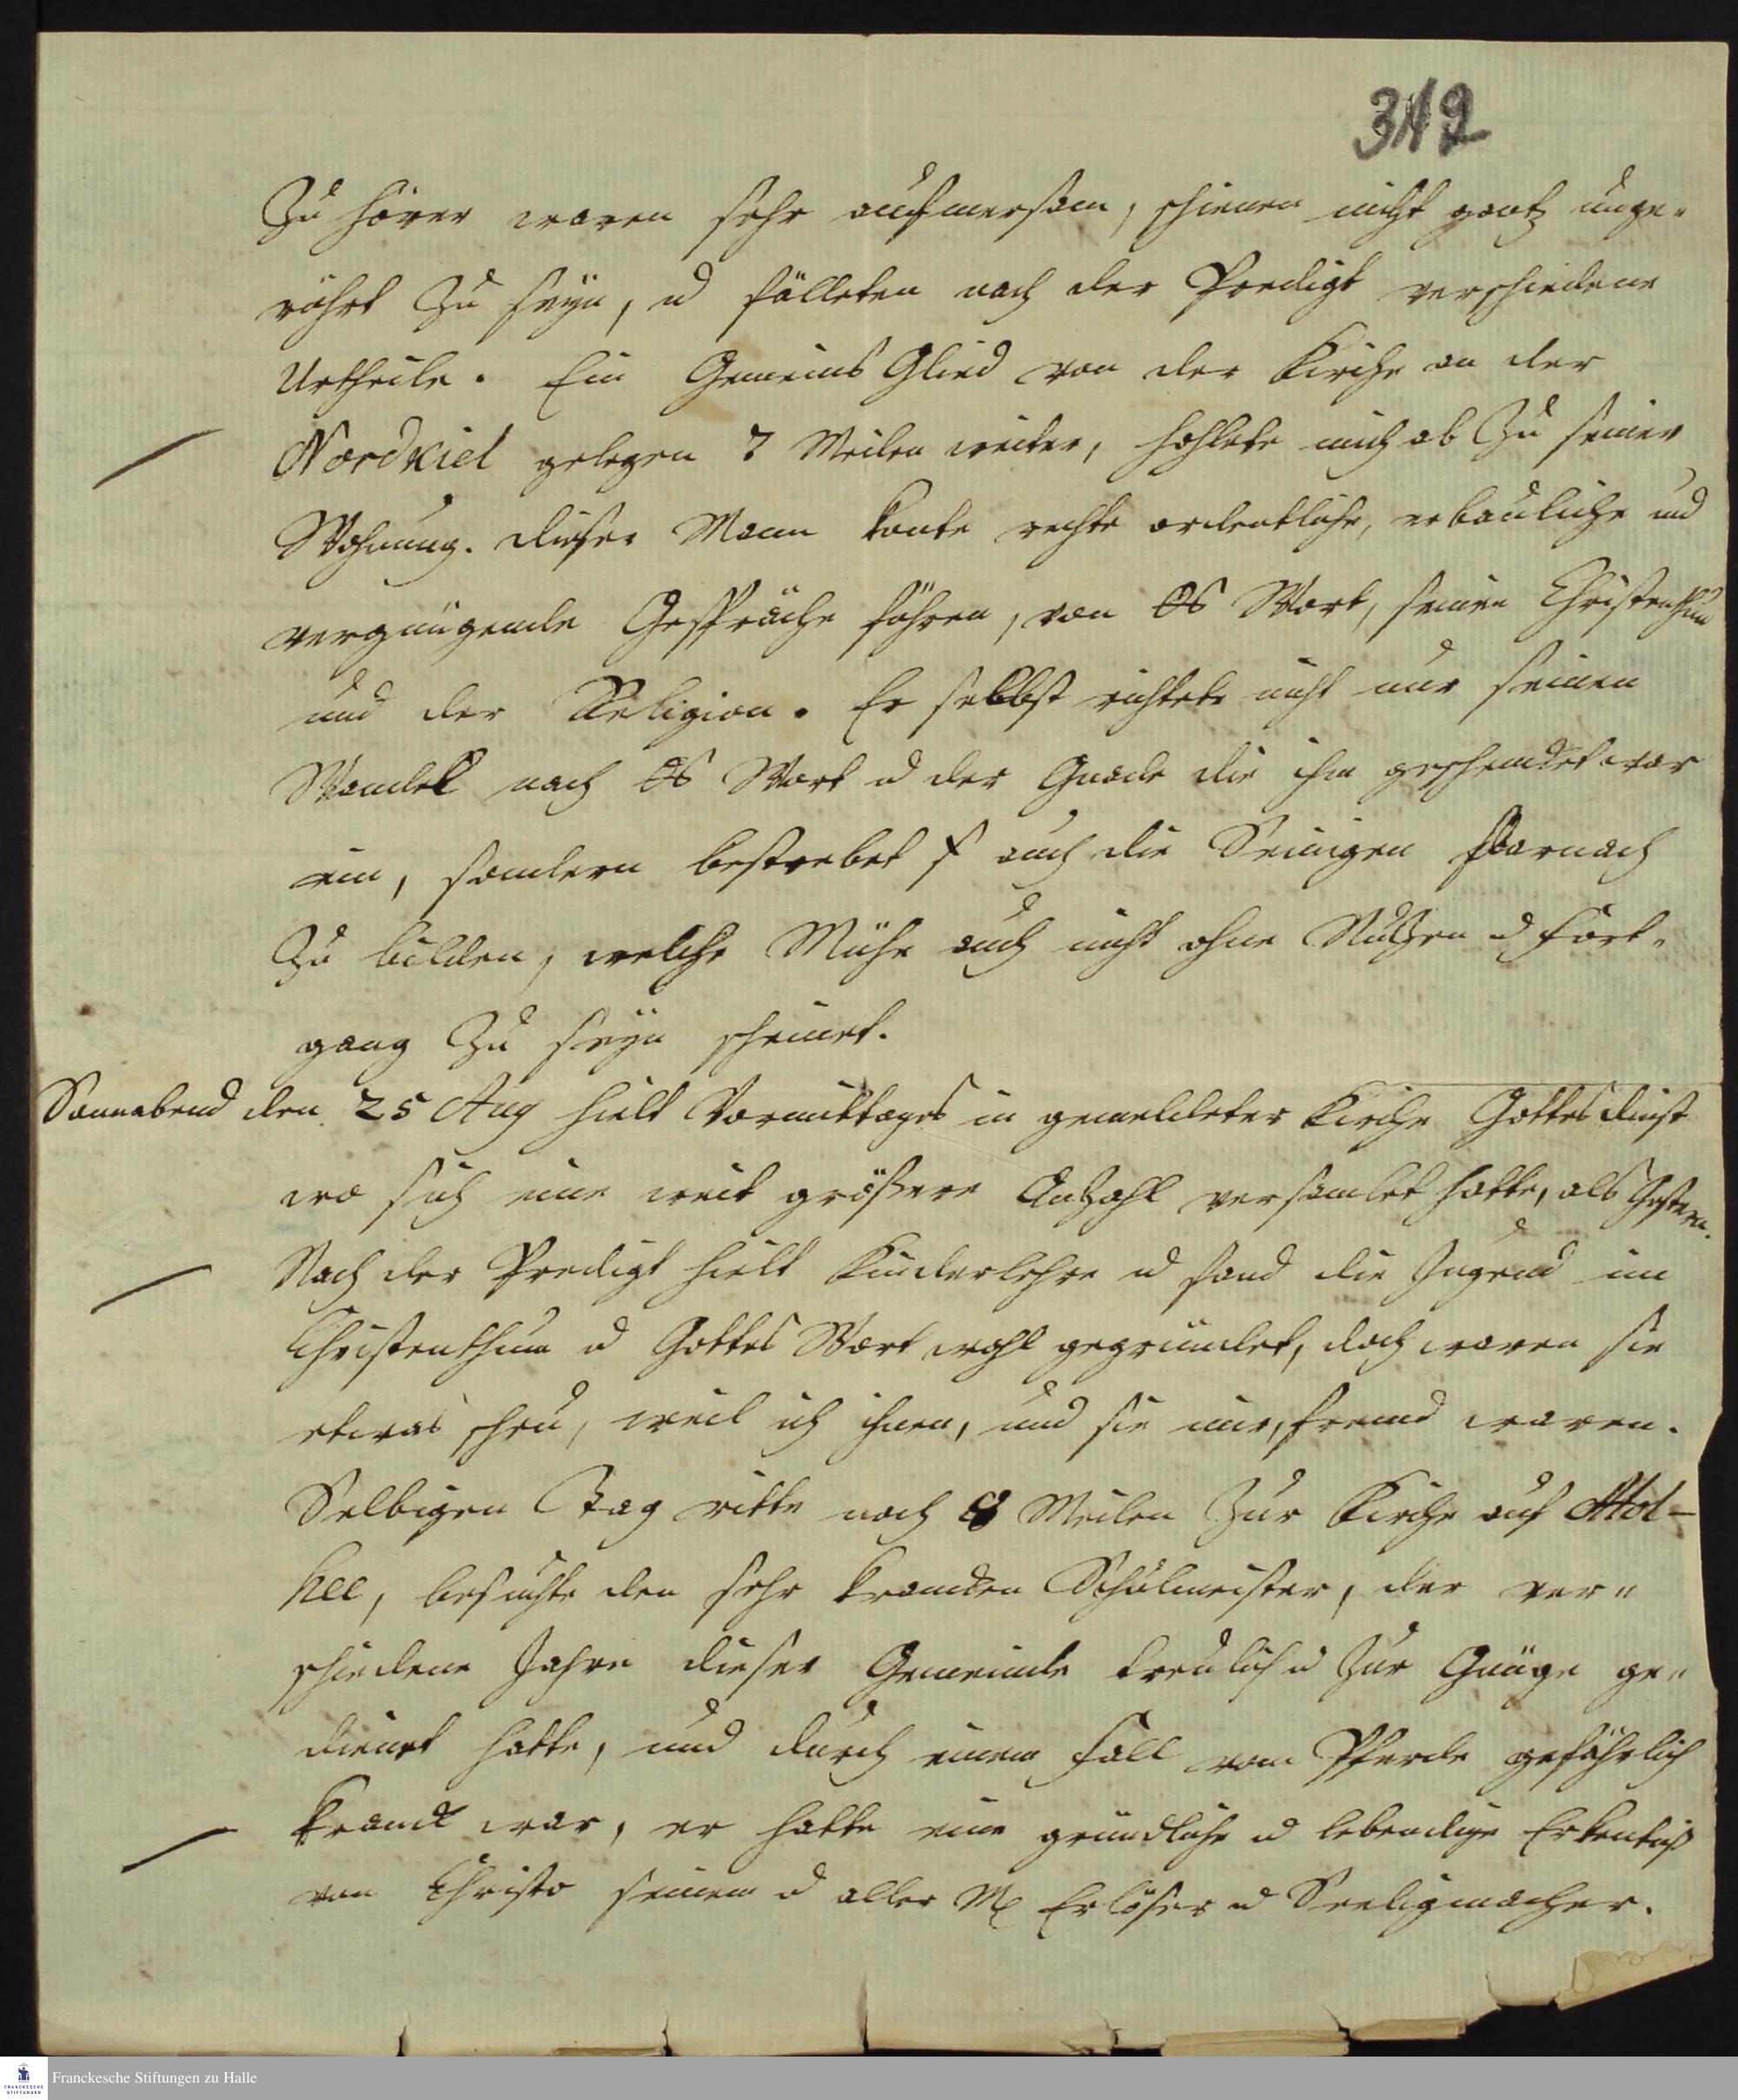 312
Zuhörer waren sehr aufmersam, schienen nicht gantz unge-
röhrt zu seyn, u fälleten nach der Predigt verschiedene
Urtheile. Ein Gemeins Glied von der Kirche an der
Nordkiel gelegen 7 Meilen weiter, hohlete mich ab zu seiner
Wohnung. dieser Mann konte rechte ordentliche, erbauliche und
vergnügende Gespräche föhren, von Gs Wort, seinen Christenthum
und der Religion. Er selbst richtete nicht nur seinen
Wandel nach Gs Wort u der Gnade die ihm geschencket war
ein, sondern bestrebet s auch die Seinigen darnach
zu bilden, welche Mühe auch nicht ohne Nutzen u fort-
gang zu seyn scheinet.
Sonnabend den 25 Aug hielt Vormittages in gemeldeter Kirche Gottesdinst
wo sich eine weit größere Anzahl versamlet hatte, als Gestern.
Nach der Predigt hielt Kinderlehre u fand die Jugend im
Christenthum u Gottes Wort wohl gegründet, doch waren sie
etwas scheu, weil ich ihnen, und sie mir, fremd waren.
Selbigen Tag ritte noch 8 Meilen zur Kirche auf
besuchte den sehr krancken Schulmeister, der ver-
schiedene Jahre dieser Gemeinde treulich u zur Gnüge ge-
dienet hatte, und durch einem fall vom Pferde gefährlich
kranck war, er hatte eine gründliche u lebendige Erkentniß
von Christo seinem u aller M Erlöser u Seeligmacher.
Franckesche Stiftungen zu Halle
FRANCKESCHE
STIFTUNGEN